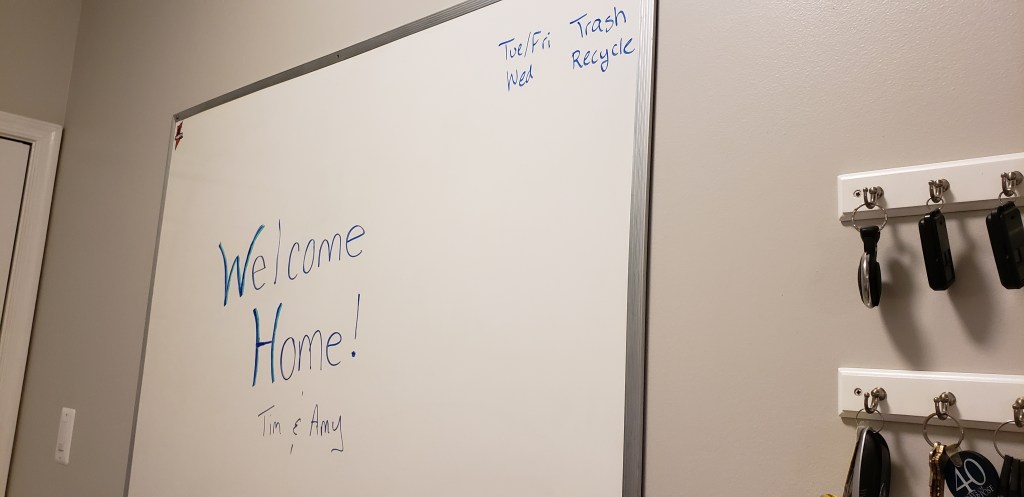 Tue/Fri Trash
Wed Recycle
Welcome
Home!
Tim & Amy
40